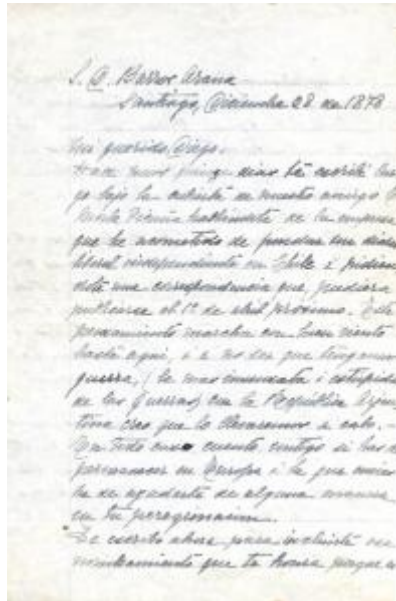 S. D. Barros Arana
Santiago, Diciembre 28 de 1878
Mi querido Diego:
Hace unos quince dias te escribí
go bajo la cubierta de nuestro amigo
hablándote de la empresa
que he acometido de fundar un diario
liberal independiente en Chile i pidien
dote una correspondencia que pudiera
publicarse el 1º de abril próximo. Este
pensamiento marcha con buen viento
hasta aquí, i a no ser que tengamos
guerra, (la mas insensata i estúpida
de las guerras) con la República Arjen
tina creo que lo llevaremos a cabo. -
En todo caso cuento contigo si has de
permanecer en Europa i
ha de ayudarte de alguna manera
en tu peregrinacion.
Te escribo ahora para incluirte un
nombramiento que te honra porque